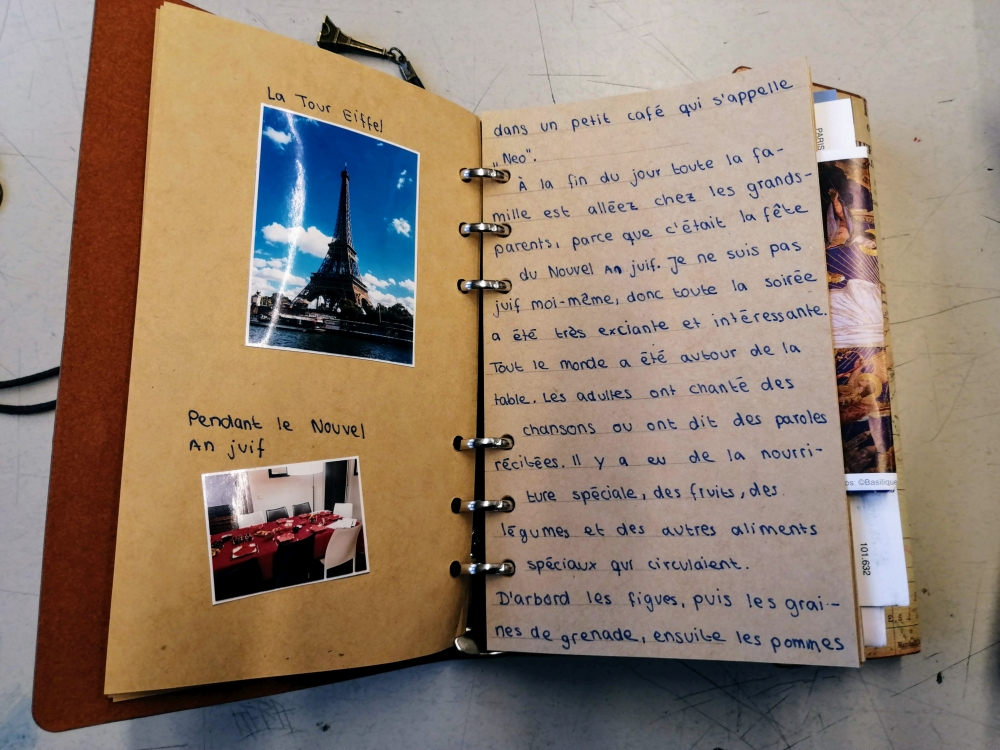 La Tour Eiffel
Pendant le Nouvel
An juif
dans un petit café qui s'appelle
"Neo".
À la fin du jour toute la fa-
mille est alléez chez les grands-
parents, parce que c'était la fête
du Nouvel An juif. Je ne suis pas
juif moi-même, donc toute la soirée
a été très exciante et intéressante.
Tout le monde a été autour de la
table. Les adultes ont chanté des
chansons ou ont dit des paroles
récitées. Il y a eu de la nourri-
ture spéciale, des fruits, des
légumes et des autres aliments
spéciaux qui circulaient.
D'arbord les figues, puis les grai-
nes de grenade, ensuite les pommes
PARIS
os: ©Basilique
101.632